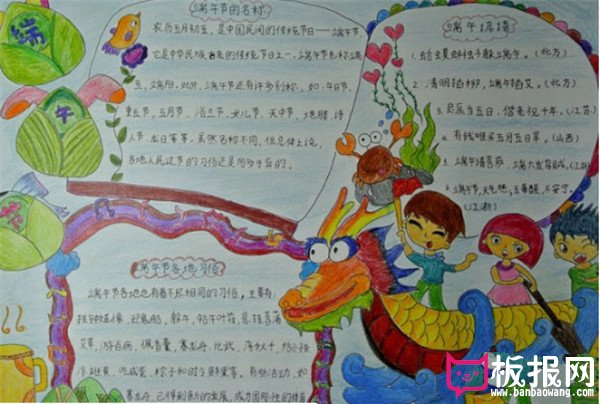 端
午
节
端午节的名称
农历五月初五,是中国民间的传统节日——端午节,
它是中华民族古老的传统节日之一。端午节也称端
五,端阳。此外,端午节还有许多别称,如:午日节、
重五节,五月节,浴兰节,女儿节,天中节、地腊、诗
人节、龙日等等。虽然名称不同,但总体上说,
各地人民过节的习俗还是同多于异的。
端午谚语
1. 蛤蟆蝌蚪躲端午。(北方)
2. 清明插柳,端午插艾。(北方)
3. 良辰当五日,偕老祝千年。(江苏)
4. 有钱难买五月五日旱。(山西)
5. 端午请菩萨,端六发乌贼。(江
6. 端午节,天气热,五毒醒,不安宁。
(江苏)
端午节各地习俗
端午节各地也有着不尽相同的习俗,主要有:
挂钟馗像,迎鬼船,躲午,帖午叶符,悬挂菖蒲
艾草,游百病,佩香囊,赛龙舟,比武,荡秋千,给小孩
涂雄黄,吃咸蛋、粽子和时令鲜果等,有些活动,如
赛龙舟,已得到新的发展,
板报网
www.banbaowang.com